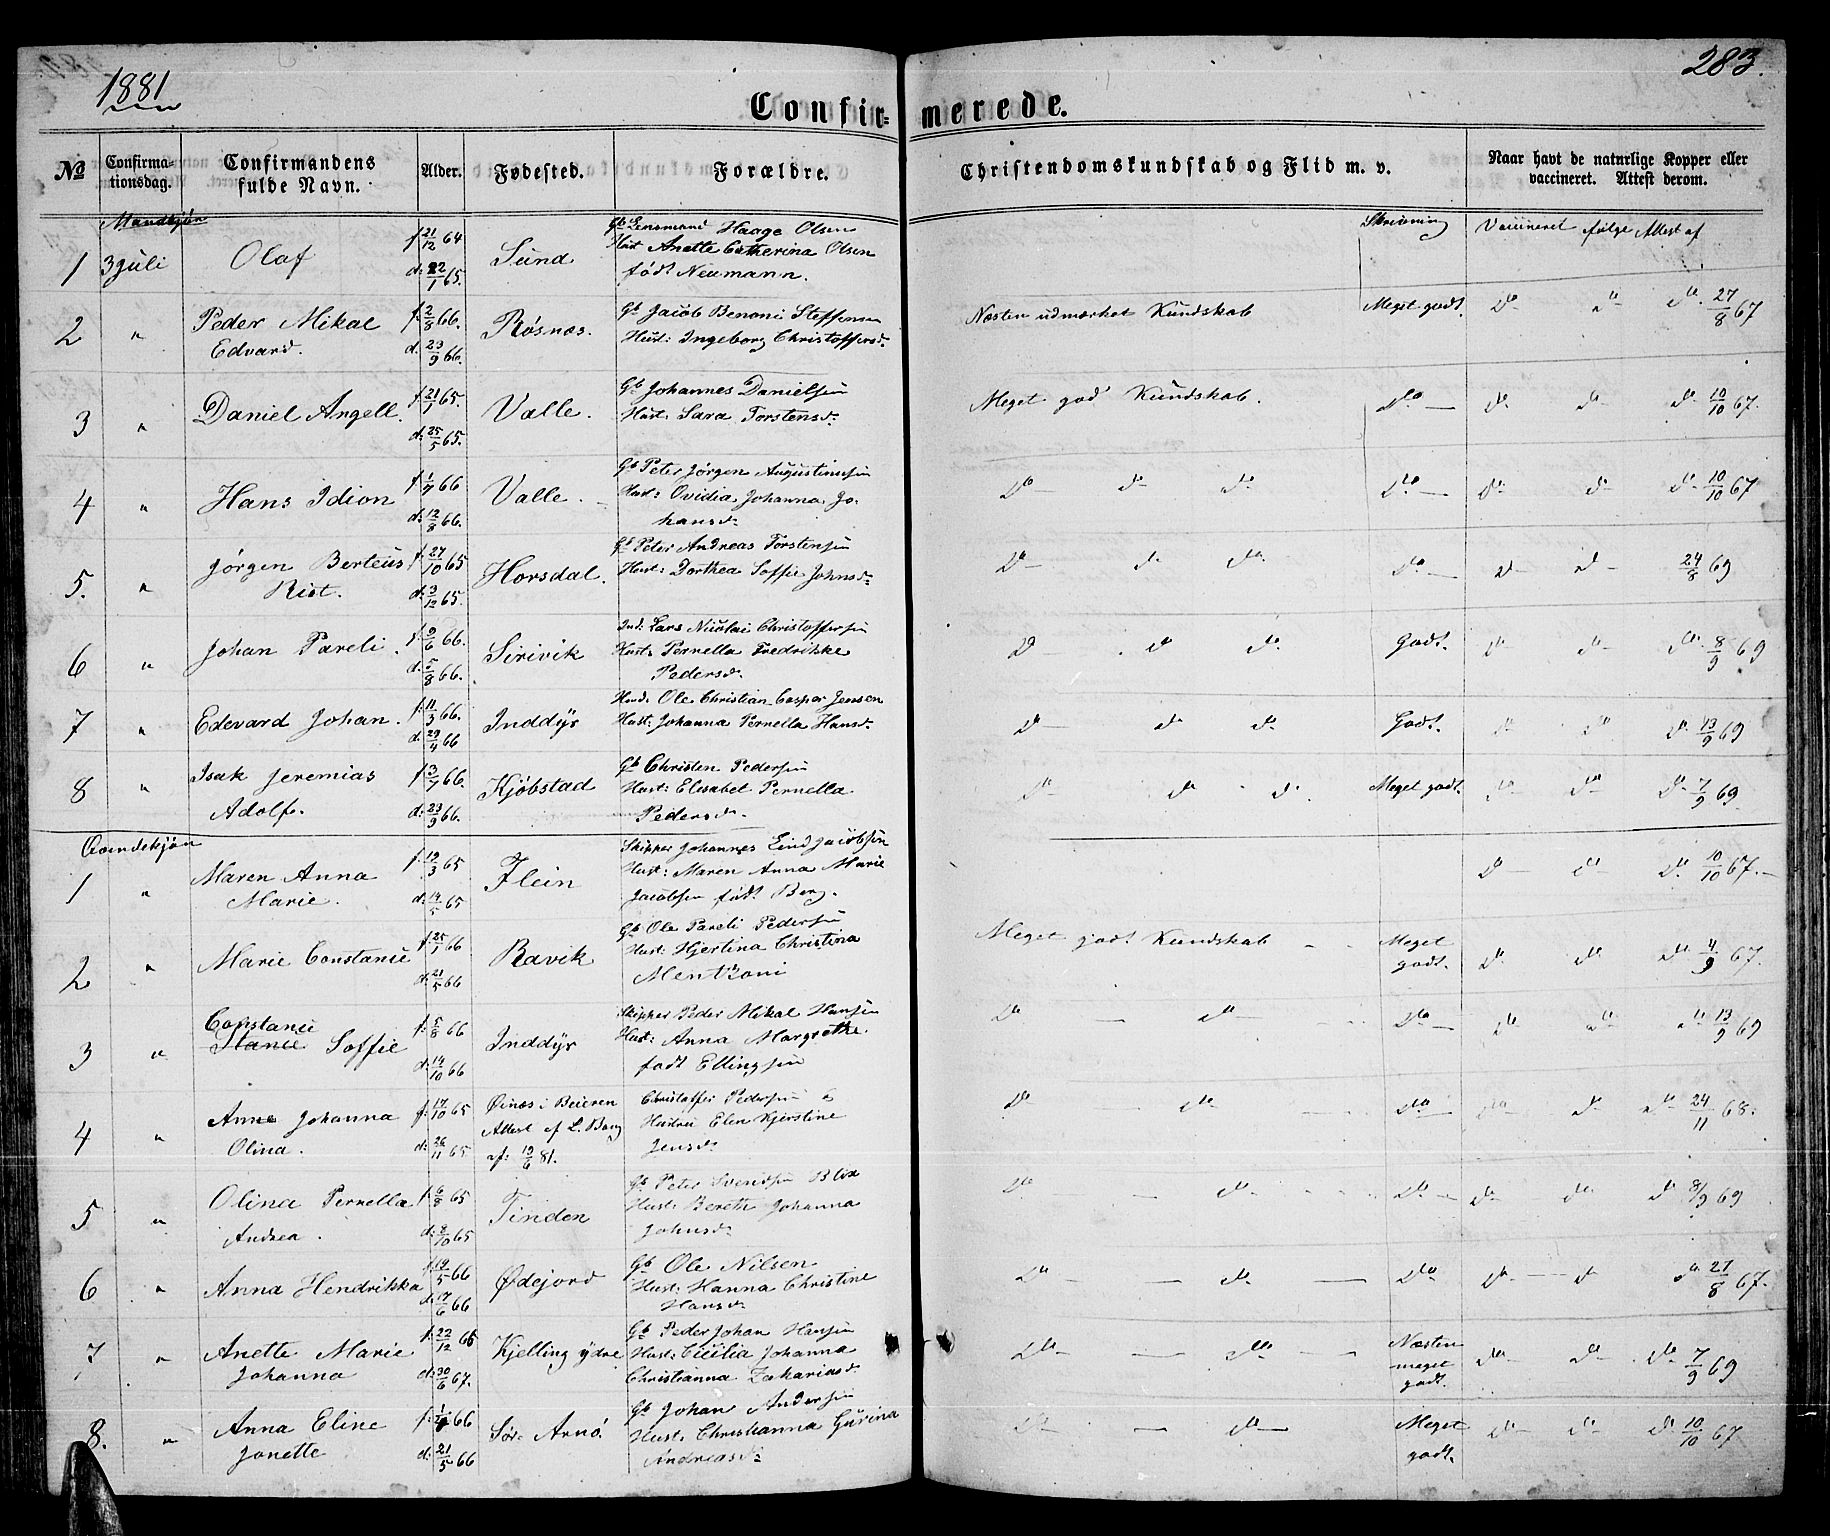 1881
283.
Confirmerede.
No
Confirmationsdag.
Confirmandens fulde Navn.
Alder.
Fødested.
Forældre.
Christendomskundskab og Flid m. v.
Naar havt de naturlige Kopper eller vaccineret. Attest derom.
Mandkjøn
Skrivning
Vaccineret følge Attest af
1 3 Juli Olaf f 21/12 64 d: 22/1 65. Sund Gb Lensmand Haage Olsen
Hust Anette Catherina Olsen
født Neumann.
2 " Peder Mikal f: 2/8 66. Røsnæs. Gb Jacob Benoni Steffensen Næsten udmærket Kundskab Meget godt. Do Do Do 27/8 67
Edvard. d. 23/9 66. Hust: Ingeborg Christoffersd.
3 " Daniel Angell. f: 21/1 65. Valle. Gb Johannes Danielsen Meget god Kundskab. Do Do Do Do 10/10 67.
d: 25/5 65. Hust: Sara Torstensd.
4 " Hans Idion f 1/7 66 Valle. Gb Peter Jørgen Augustinusen Do Do Do Do Do Do Do 10/10 67
d: 12/8 66. Hust: Ovidia Johanna Jo-
hansd.
5. " Jørgen Berteus f: 27/10 65 Horsdal. Gb Peter Andreas Torstensen Do Do Do Do Do Do 24/8 69
Rist. d: 3/12 65. Hust: Dorthea Soffie Johnsd.
6 " Johan Pareli. f: 9/6 66. Sirivik Ind: Lars Nicolai Christoffersen Do Do Do Godt. Do Do Do 8/9 69
d. 5/8 66. Hust: Pernella Fredrikke
Pedersd.
7 " Edevard Johan. f: 11/3 66. Inddyr Husd: Ole Christian Caspar Jensen Do Do Do Godt. Do Do Do 13/9 69
d. 29/4 66 Hust: Johanna Pernella Hansd.
8 " Isak Jeremias f 3/7 66. Kjøbstad Gb Christen Pedersen Do Do Do Meget godt. Do Do Do 7/9 69.
Adolf. d: 23/9 66. Hust: Elisabet Pernella
Pedersd.
Qvindekjøn
1 " Maren Anna f: 19/3 65 Flein Skipper Johannes Lind Jacobsen Do Do Do 10/10 67.
Marie. d: 14/5 65 Hust: Maren Anna Marie
Jacobsen født Berg.
2 " Marie Constance f: 25/1 66 Ravik Gb Ole Pareli Pedersen Meget godt Kundskab Meget godt. Do Do Do 4/9 67.
d: 21/5 66 Hust: Hjertina Christina
Mentzoni
3 " Constance f: 5/8 66 Inddyr Skipper Peder Mikal Hansen Do Do Do Do Do Do 13/9 69
Stance Soffie d: 14/10 66 Hust: Anna Margrethe
født Ellingsen
4 " Anne Johanna f: 17/10 65 Øinæs i Beieren Christoffer Pedersen & Do Do Do Do Do Do 24/11 68.
Olina. d: 26/11 65 Attest af L. Bang Hustru Elen Kjerstine
af: 19/6 81. Jensd.
5 " Olina Pernella f 6/8 65 Tinden Gb Peter Svendsen Blix Do Do Do Do Do Do 8/9 69
Andrea. d: 8/10 65 Hust: Bereth Johanna
Johnsd.
6 " Anna Hendrikka f: 19/5 66 Ødejord Gb Ole Nilsen Do Do Do Do Do Do 27/8 67.
d: 17/6 66 Hust: Hanna Christine
Hansd.
7 " Anette Marie f: 22/12 66 Kjelling ydre Gb Peder Johan Hansen Do Do Næsten meget godt. Do Do Do 7/9 69
Johanna d: 30/6 67. Hust: Cecilia Johanna
Christianna Zakariasd.
8. " Anna Eline f: 66 Sør Arnø. Gb Johan Andersen Do Do Meget godt. Do Do Do 10/10 67
Jonette d: 21/5 66 Hust: Christianna Gurina
Andreasd: